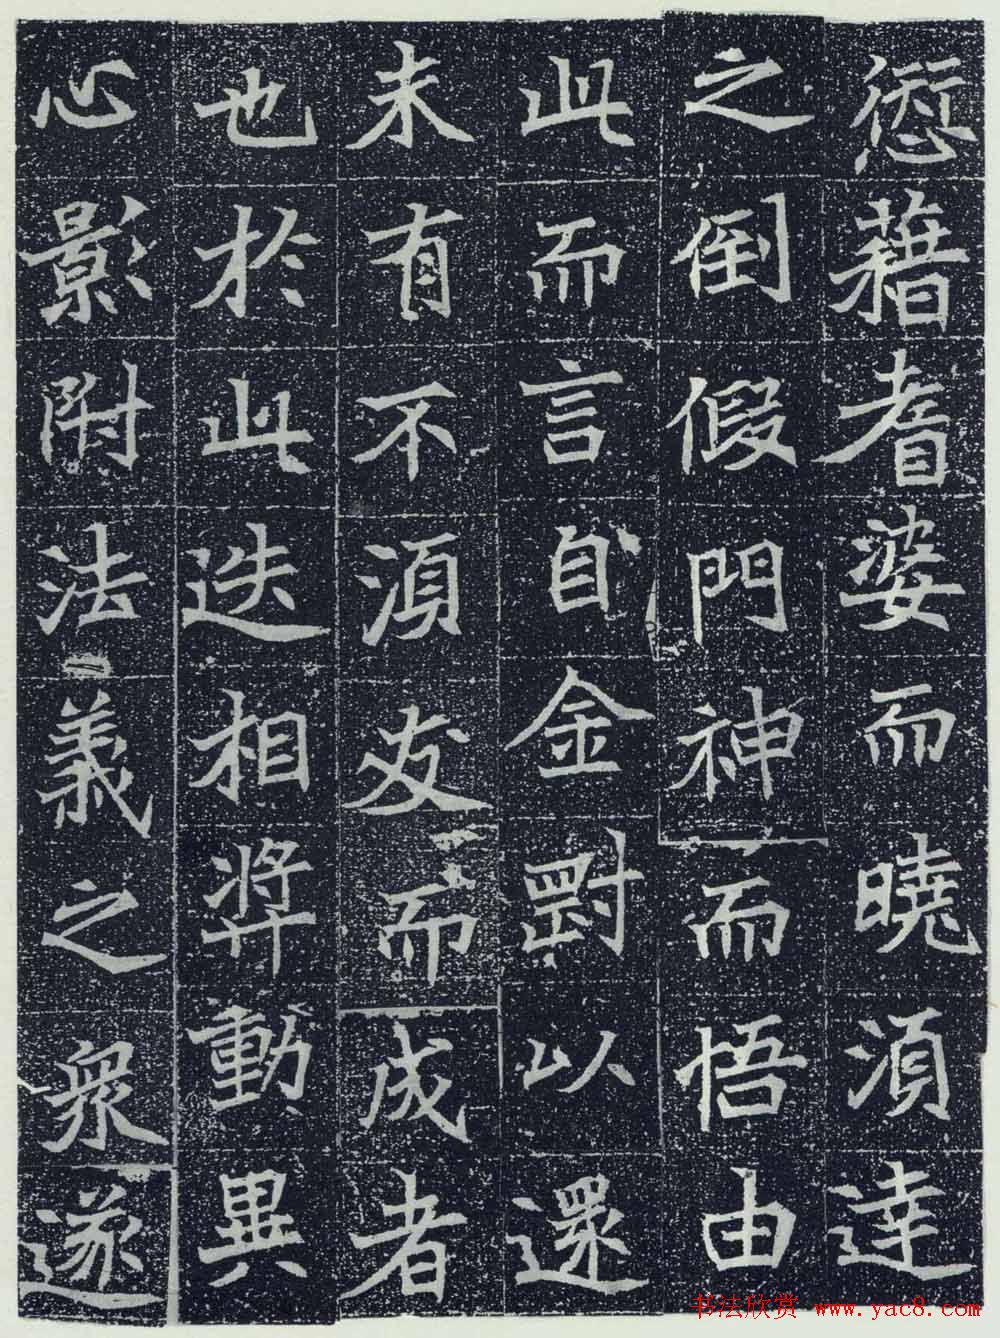 愆藉耆婆而曉湏達
之倒假門神而悟由
此而言自金剛以還
未有不湏友而成者
也於此迭相弉動異
心影附法義之眾遂
书法欣赏 www.yac8.com